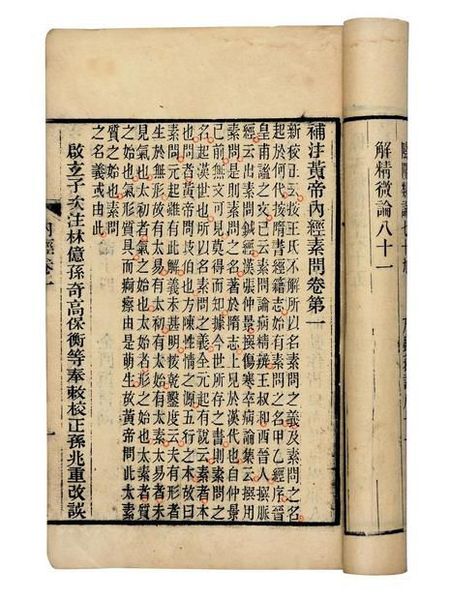 解精微論八十一
補注黃帝內經素問卷第一
新校正云按王氏不解所以名素問之義及素問之名
起於何代按隋書經籍志始有素問之名甲乙經序晉
皇甫謐之文已云素問論病精辨王叔和西晉人撰脉
經云出素問鍼經漢張仲景撰傷寒卒病論集云撰用
素問是則素問之名著於隋志上見於漢代也自仲景
已前無文可見莫得而知據今世所存之書則素問之
名起漢世也所以名素問之義全元起有說云素者本
也問者黃帝問岐伯也方陳性情之源五行之本故曰
素問元起雖有此解義未甚明按乾鑿度云夫有形者
生於無形故有太易有太初有太始有太素太易者未
見氣也太初者氣之始也太始者形之始也太素者質
之始也氣形質具而痾瘵由是萌生故黃帝問此太素
質之始也素問
之名義或由此
啟玄子次注林億孫奇高保衡等奉敕校正孫兆重改誤
內經卷一